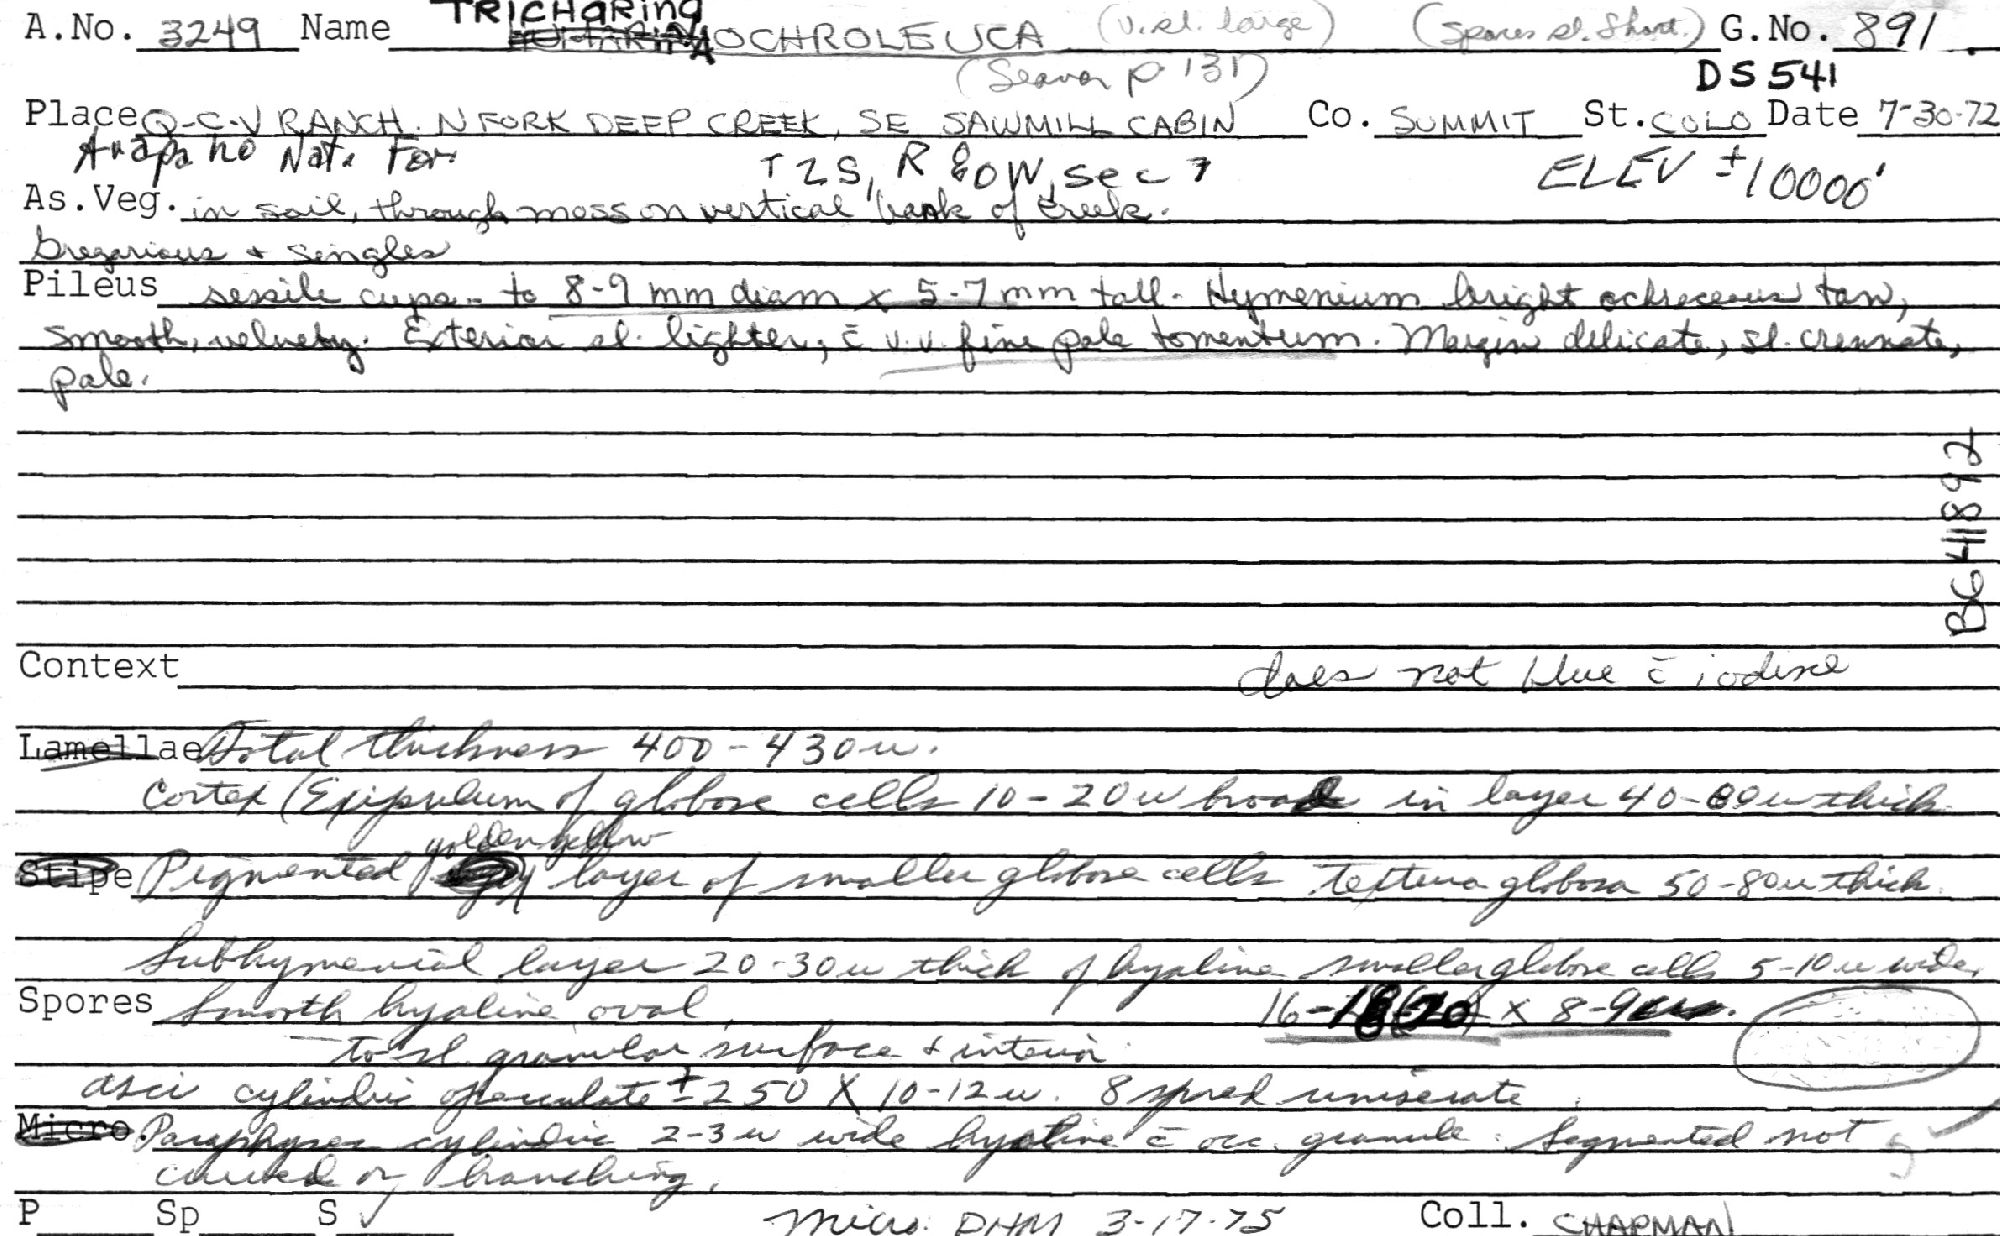 TRICHARINA
A.No. 3249 Name HUMARINA OCHROLEUCA (v. sl. large) (Spores sl. short.) G.No. 891
(Seaver p 131) DS 541
Place Q-C-V RANCH. N FORK DEEP CREEK, SE SAWMILL CABIN Co. SUMMIT St. COLO Date 7-30-72
Arapaho Nat. For T2S, R 80W, sec 7 ELEV ±10000'
As.Veg. in soil, through moss on vertical bank of creek.
Gregarious + singles
Pileus sessile cups - to 8-9 mm diam x 5-7 mm tall. Hymenium bright ochreceous tan,
smooth, velvety. Exterior sl. lighter, c̄ v.v. fine pale tomentum. Margin delicate, sl. crennate,
pale.
BC411892
Context does not blue c̄ iodine
Lamellae Total thickness 400-430u.
Cortex (Epipulum of globose cells 10-20u broad in layer 40-60u thick
golden yellow
Stipe Pigmented layer of smaller globose cells textura globosa 50-80u thick.
Subhymenial layer 20-30u thick of hyaline smaller globose cells 5-10u wide.
Spores Smooth hyaline oval, 16-18(20) x 8-9um.
to sl. granular surface + interior.
asci cylindric operculate ± 250 X 10-12u. 8 spred uniserate
Micro. Paraphyses cylindric 2-3u wide hyaline c̄ occ. granule. Segmented not
curved or branching.
P Sp S ✓ Micro. DHM 3-17-75 Coll. CHAPMAN